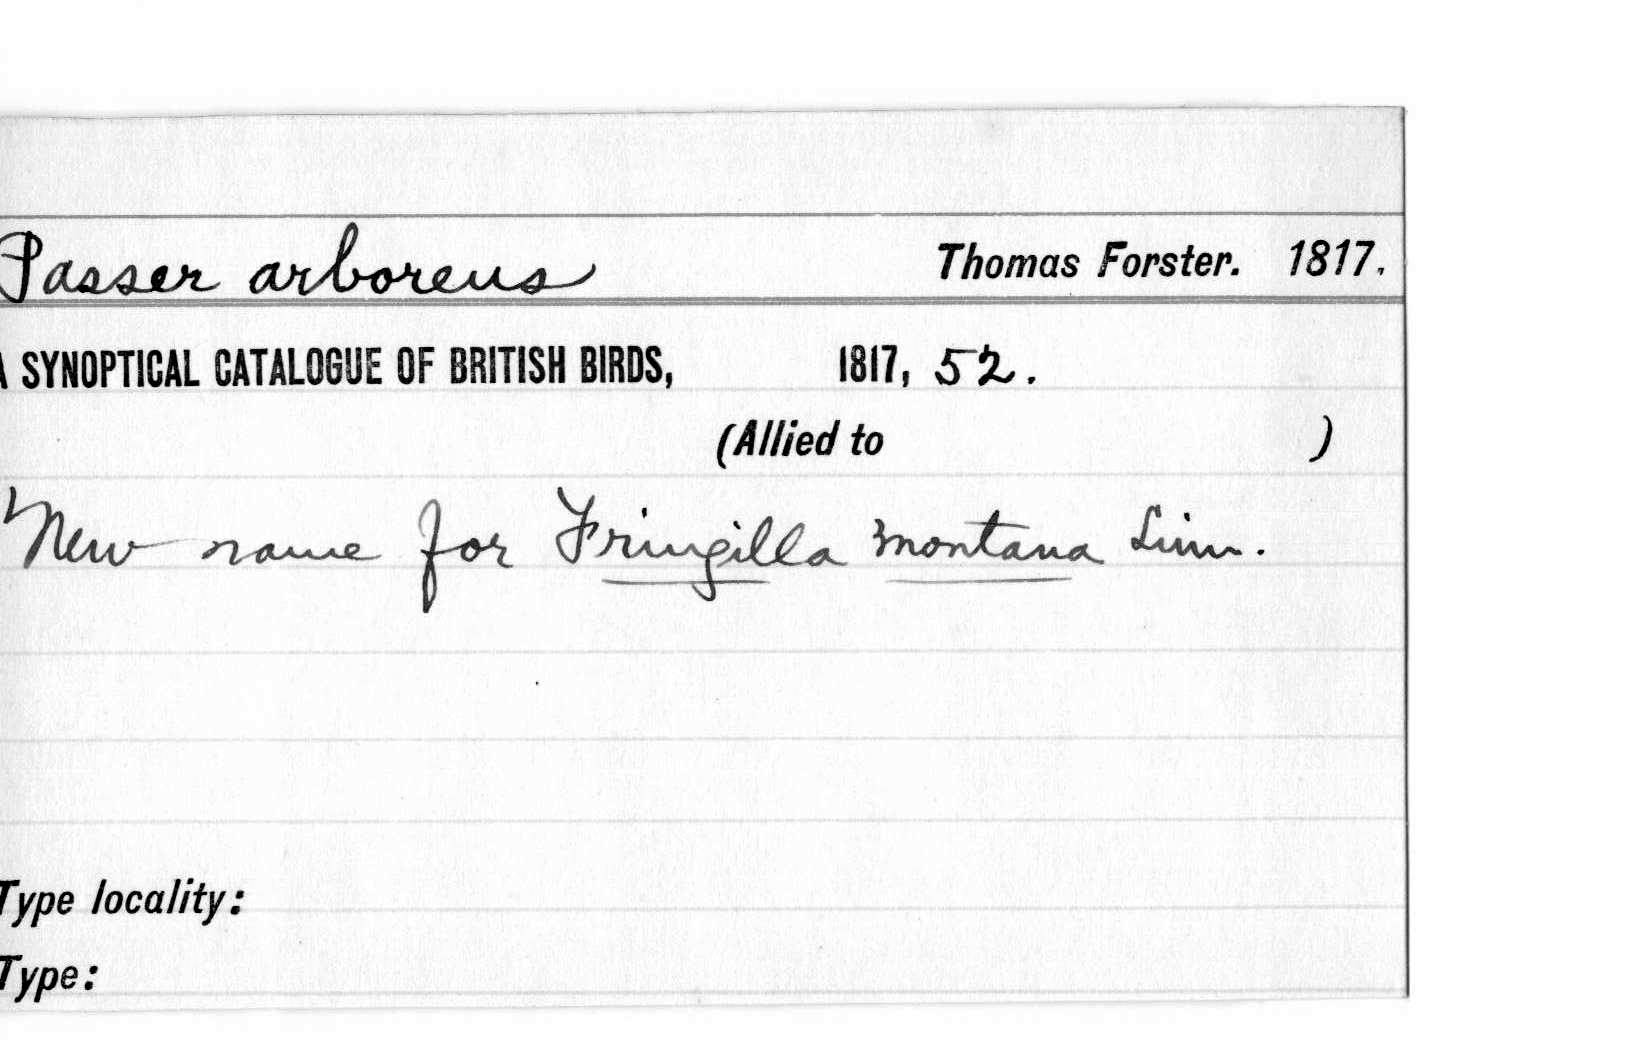 Passer arboreus Thomas Forster. 1817.
A SYNOPTICAL CATALOGUE OF BRITISH BIRDS, 1817, 52.
(Allied to )
New name for Fringilla montana Linn.
Type locality:
Type: